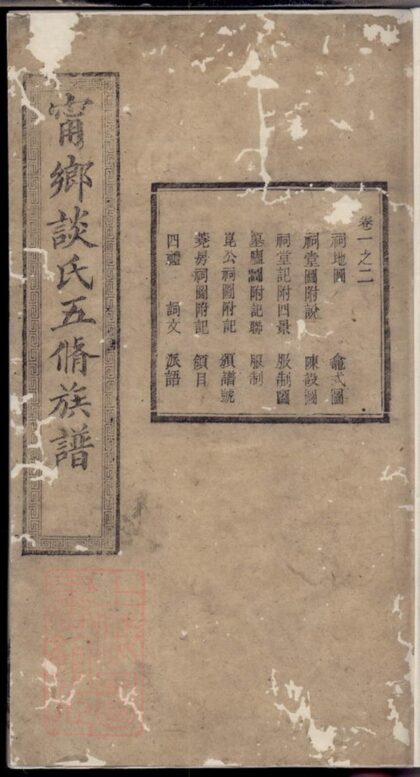 甯鄉談氏五脩族譜
卷一之二
祠地圖 龕式圖
祠堂圖附說 陳設圖
祠堂記附四景 服制圖
墓廬圖附記聯 服制
崑公祠圖附記 領譜號
菴房祠圖附記 領目
四禮 詞文 派語